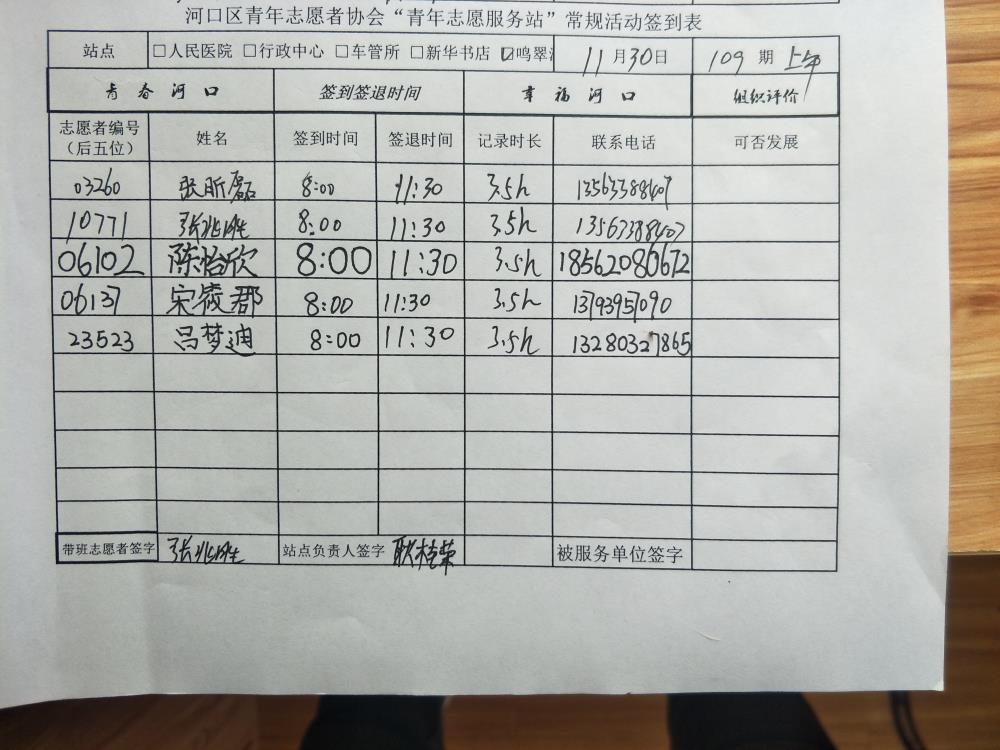 河口区青年志愿者协会“青年志愿服务站”常规活动签到表
站点 □人民医院 □行政中心 □车管所 □新华书店 ☑鸣翠 11月30日 109期 上午
青春河口 签到签退时间 幸福河口 组织评价
志愿者编号（后五位） 姓名 签到时间 签退时间 记录时长 联系电话 可否发展
03260 张昕磊 8:00 11:30 3.5h 13563388407
10771 张兆胜 8:00 11:30 3.5h
06102 陈怡欣 8:00 11:30 3.5h 18562080672
06137 宋筱郡 8:00 11:30 3.5h 13793957090
23523 吕梦迪 8:00 11:30 3.5h 13280327865
带班志愿者签字 张兆胜 站点负责人签字 耿桂荣 被服务单位签字